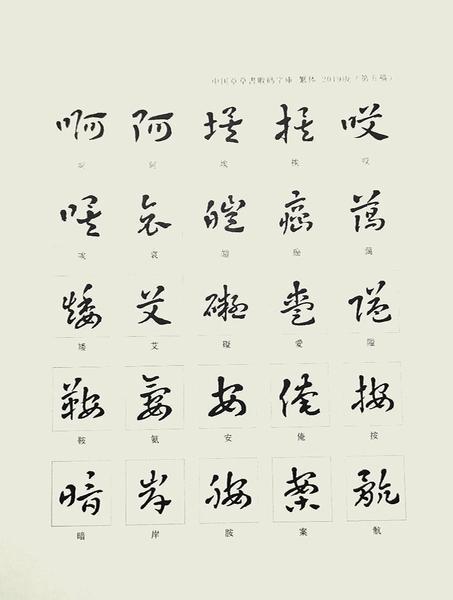 中国章草書數碼字庫 繁体 2019版（第五稿）
啊 阿 埃 挨 哎
啊 阿 埃 挨 哎
唉 哀 皚 癌 藹
唉 哀 皚 癌 藹
矮 艾 礙 愛 隘
矮 艾 礙 愛 隘
鞍 氨 安 俺 按
鞍 氨 安 俺 按
暗 岸 胺 案 骯
暗 岸 胺 案 骯